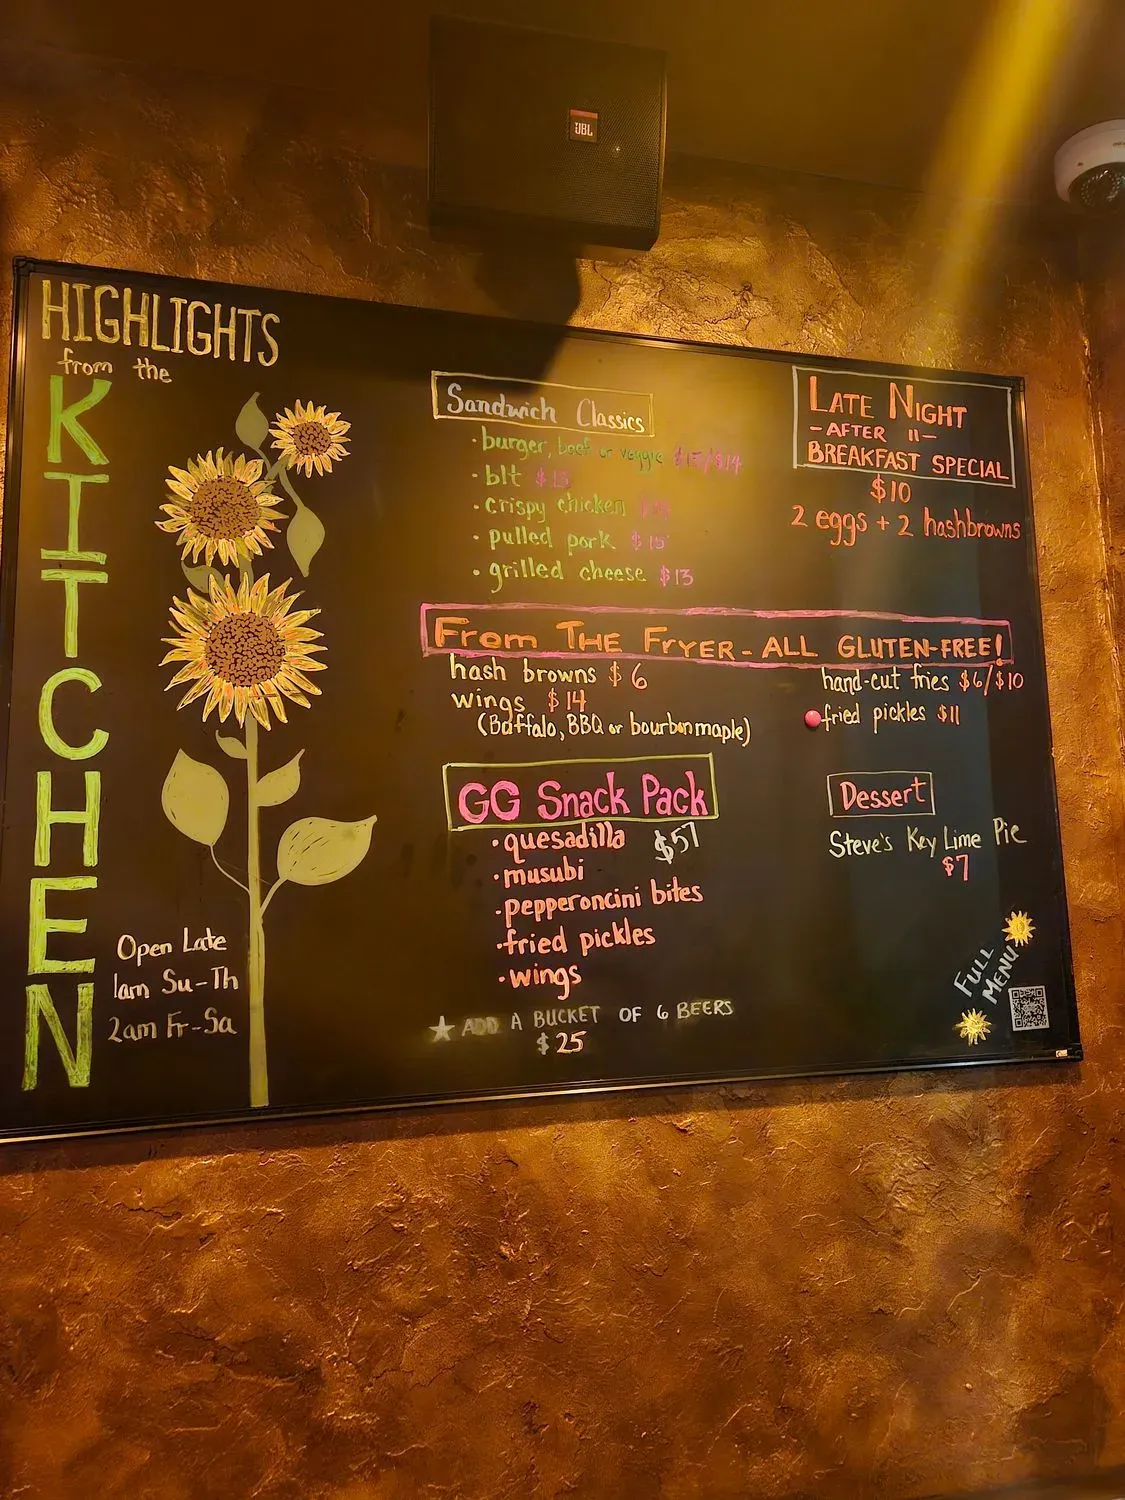 JBL
HIGHLIGHTS
from the
KITCHEN
Open Late
1am Su-Th
2am Fr-Sa
Sandwich Classics
· burger, beef or veggie $15/$14
· blt
· crispy chicken
· pulled pork $15
· grilled cheese $13
LATE NIGHT
- AFTER 11 -
BREAKFAST SPECIAL
$10
2 eggs + 2 hashbrowns
From THE FRYER - ALL GLUTEN-FREE!
hash browns $6
wings $14
(Buffalo, BBQ or bourbon maple)
hand-cut fries $6/$10
fried pickles $11
GG Snack Pack
· quesadilla $57
· musubi
· pepperoncini bites
· fried pickles
· wings
★ ADD A BUCKET OF 6 BEERS
$25
Dessert
Steve's Key Lime Pie
$7
FULL
MENU